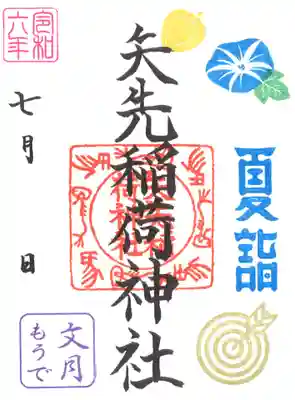 令和
六年
七月 日
矢先稲荷神社
夏詣
文月
もうで